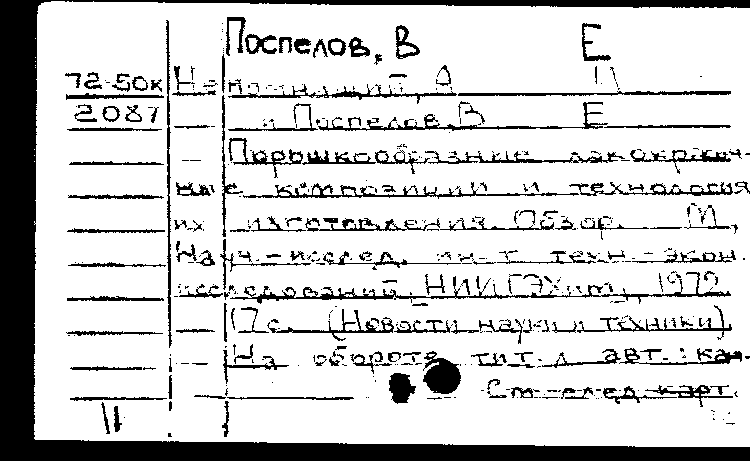 Поспелов, В Е
72-50к Непомнящий, А И
2087 и Поспелов, В Е
Порошкообразные лакокрасоч-
ные композиции и технология
их изготовления. Обзор. М.,
Науч.-исслед. ин-т техн.-экон.
исследований "НИИТЭХим", 1972.
17с. (Новости науки и техники).
На обороте тит. л авт.: кан-
См след карт.
11